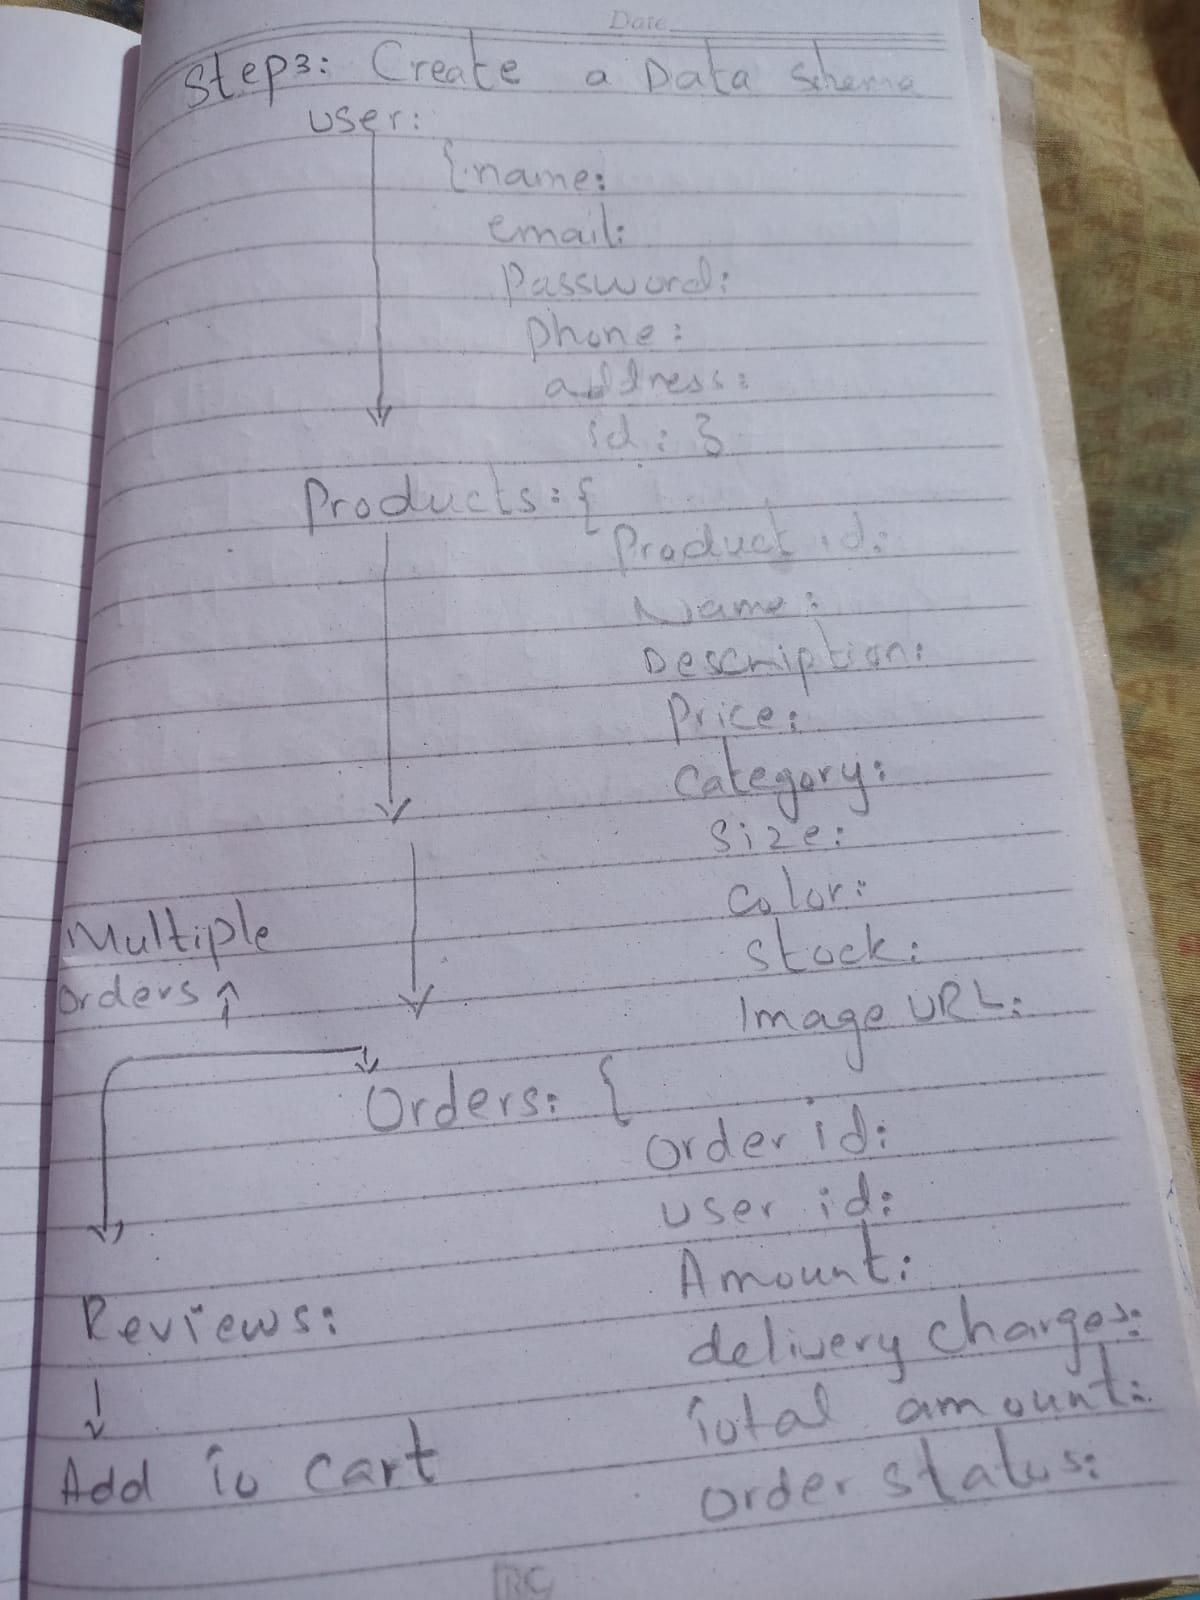 Date
Step3: Create a Data Schema
user:
{name:
email:
Password:
Phone:
address:
id: }
Products: {
Product id:
Name:
Description:
Price:
Category:
Size:
Color:
Stock:
Image URL:
Multiple
orders
Orders: {
order id:
user id:
Amount:
delivery charges:
Total amount:
order status:
Reviews:
Add To Cart